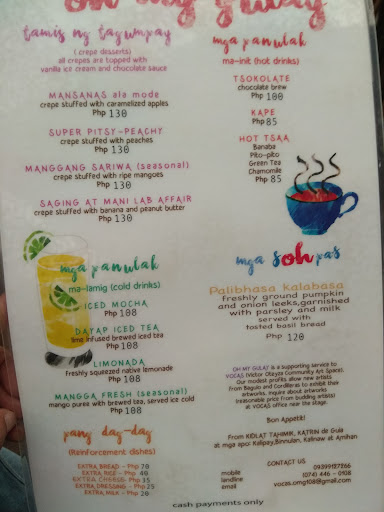 oh my gulay
tamis ng tagumpay
( crepe desserts)
all crepes are topped with
vanilla ice cream and chocolate sauce
MANSANAS ala mode
crepe stuffed with caramelized apples
Php 130
SUPER PITSY-PEACHY
crepe stuffed with peaches
Php 130
MANGGANG SARIWA (seasonal)
crepe stuffed with ripe mangoes
Php 130
SAGING AT MANI LAB AFFAIR
crepe stuffed with banana and peanut butter
Php 130
mga panulak
ma-lamig (cold drinks)
ICED MOCHA
Php 108
DAYAP ICED TEA
lime infused brewed iced tea
Php 108
LIMONADA
Freshly squeezed native lemonade
Php 108
MANGGA FRESH (seasonal)
mango puree with brewed tea, served ice cold
Php 108
pang dag-dag
(Reinforcement dishes)
EXTRA BREAD - Php 70
EXTRA RICE - Php 40
EXTRA CHEESE - Php 35
EXTRA DRESSING - Php 25
EXTRA MILK - Php 20
mga panulak
ma-init (hot drinks)
TSOKOLATE
chocolate brew
Php 100
KAPE
Php 85
HOT TSAA
Banaba
Pito-pito
Green Tea
Chamomile
Php 85
mga sohpas
Palibhasa Kalabasa
Freshly ground pumpkin
and onion leeks,garnished
with parsley and milk
served with
tosted basil bread
Php 120
OH MY GULAY is a supporting service to
VOCAS (Victor Oteyza Community Art Space).
Our modest profits allow new artists
from Baguio and Cordilleras to exhibit their
artworks. Inquire about artworks
(reasonable price from budding artists)
at VOCAS office near the stage.
Bon Appetit!
From KIDLAT TAHIMIK, KATRIN de Guia
at mga apo: Kalipay,Binnulan, Kalinaw at Amihan
CONTACT US
mobile 09399127266
landline (074) 446 - 0108
email vocas.omg108@gmail.com
cash payments only